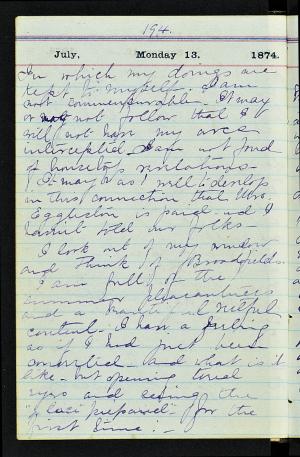 194.
July, Monday 13. 1874.
In which my doings are
kept to myself. I am
not commensurable. It may
or may not follow that I
will not have my
intercepted. I am not fond
of housetop revelations.
It may be as well to develop
in this connection that Mrs.
Eggleston is and I
haven't told our folks.
I look out of my window
and think of Broadfields.
I am full of the
summer pleasantness
and a
content. I have a feeling
as if I had just been
and what is it
like but opening tired
eyes and seeing the
"place prepared" for the
first time! -